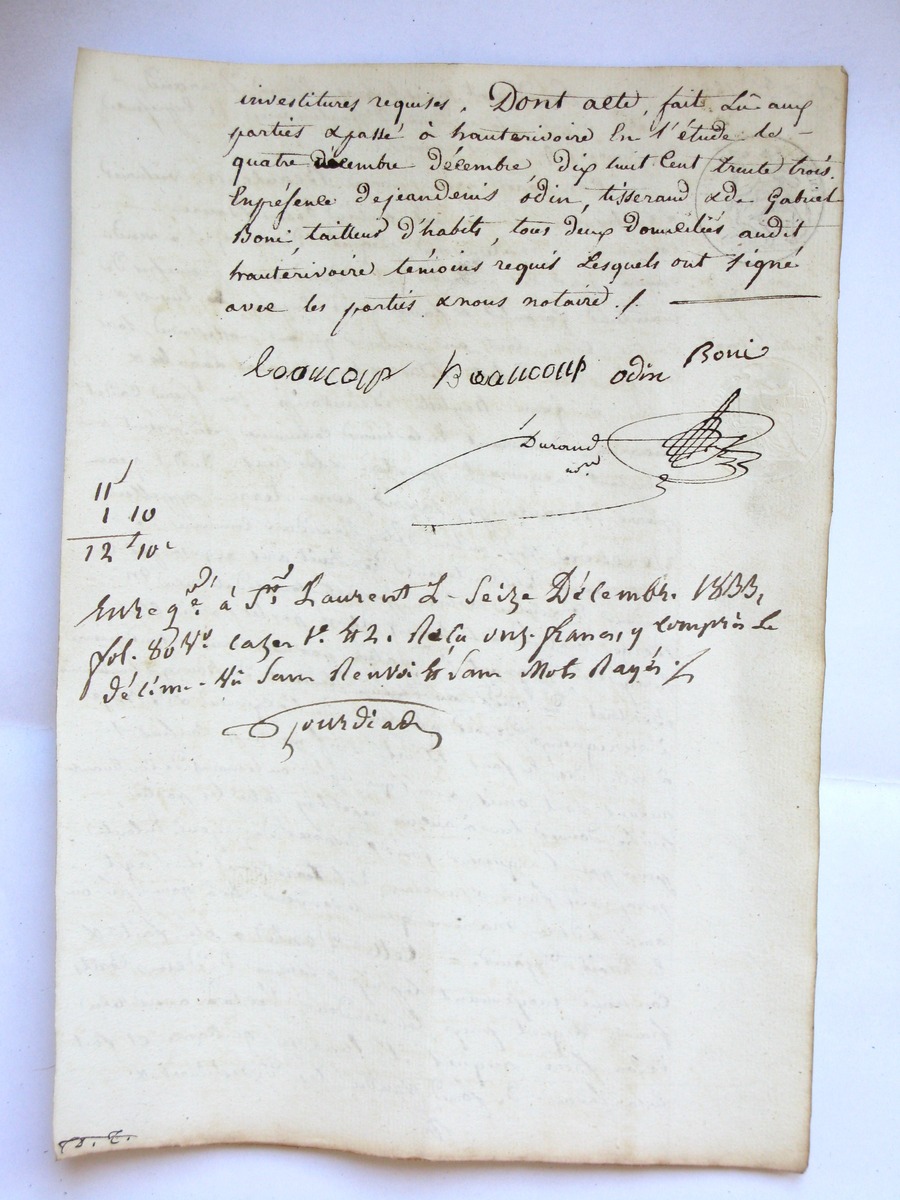 investitures requises. Dont acte, fait Lû aux
parties & passé à hauterivoire En l'étude le –
quatre décembre décembre dix huit Cent trente trois.
En présence de jean denis odin, tisserand & de Gabriel
Boni, tailleur d'habits, tous deux domiciliés audit
hauterivoire témoins requis Lesquels ont signé
avec les parties & nous notaire. /.
beaucoup Beaucoup odin Boni
Durand
nre
11
1 10
12 f 10 c
Enregé à St Laurent L. Seize Décembre 1833,
fol. 80 Vo cazes 1e et 2. Reçu onze francs, y compris Le
décime. Vu Sans Renvoi et Sans Mots Rayés ./.
Jourdiad
D. T.